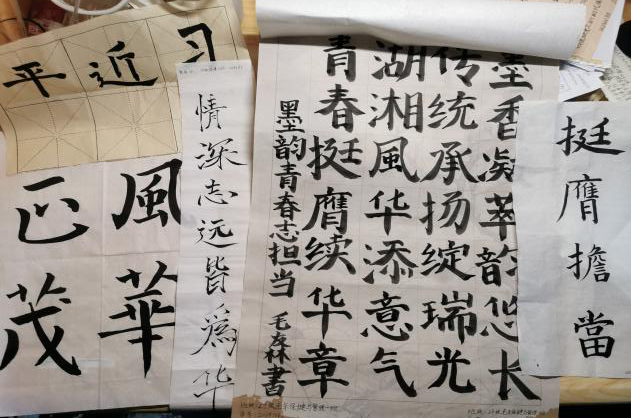 习近平
風華
正茂
情深志远皆爲华
墨香凝萃韵悠长
传统承扬绽瑞光
湖湘風华添意气
青春挺膺续华章
墨韵青春志担当
挺膺擔當